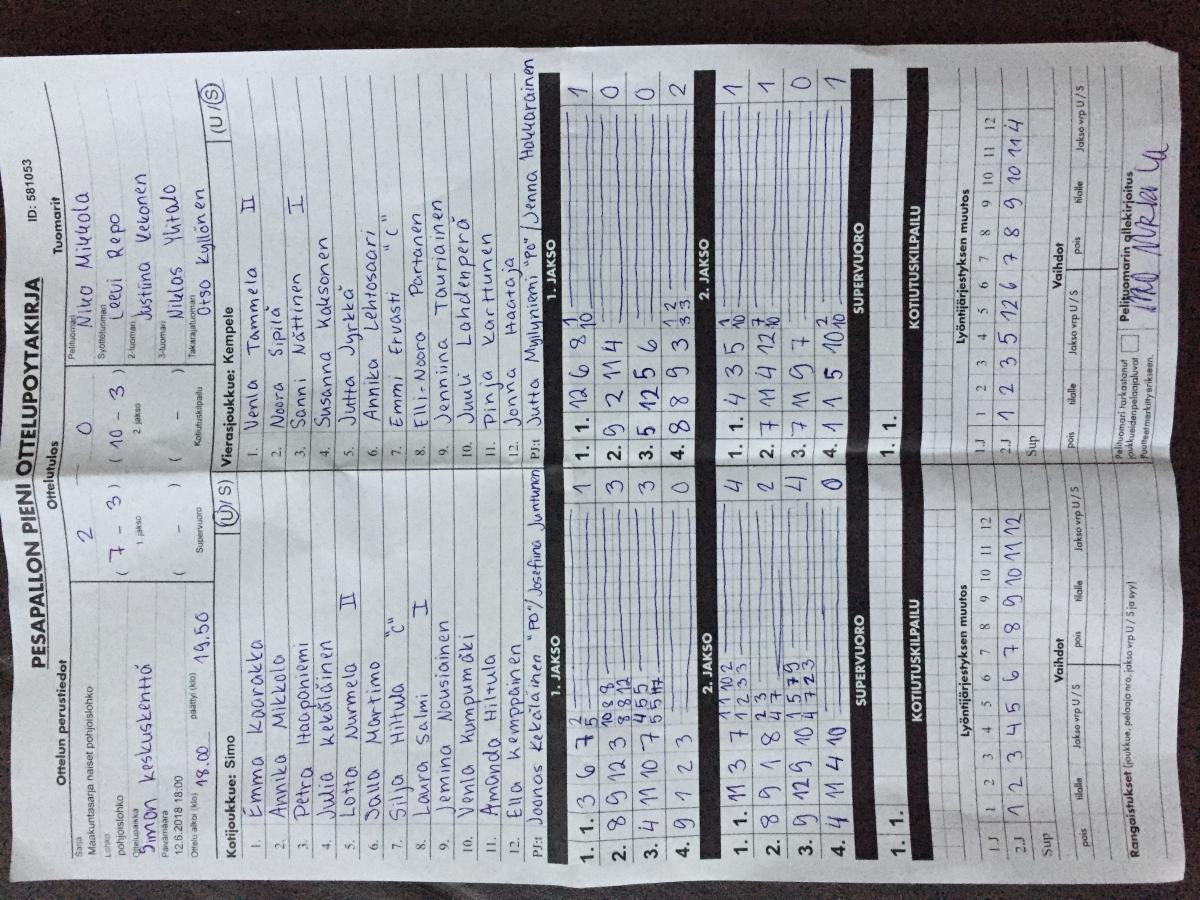 PESAPALLON PIENI OTTELUPOYTAKIRJA
ID: 581053
Ottelun perustiedot
Ottelutulos
Tuomarit
Sarja
Maakuntasarja naiset pohjoislohko
Lohko
pohjoislohko
Ottelupaikka
Simon keskuskenttä
Päivämäärä
12.6.2018 18:00
Ottelu alkoi (klo) 18.00 päättyi (klo) 19.50
2 - 0
( 7 - 3 ) ( 10 - 3 )
1. jakso 2. jakso
( - ) ( - )
Supervuoro Kotiutuskilpailu
Pelituomari
Niko Mikkola
Syöttötuomari
Leevi Repo
2-tuomari
Justiina Kekonen
3-tuomari
Niklas Ylitalo
Takarajatuomari
Otso Kyllönen
Kotijoukkue: Simo (U / S)
1. Emma Kaarakka
2. Annika Mikkola
3. Petra Haaponiemi
4. Julia Kekäläinen
5. Lotta Nurmela II
6. Salla Martimo
7. Silja Hiltula "C"
8. Laura Salmi I
9. Jemina Nousiainen
10. Venla Kumpumäki
11. Amanda Hiltula
12. Ella Kemppainen
PJ:t Joonas Kekäläinen "PO"/Josefiina Juntunen
Vierasjoukkue: Kempele (U / S)
1. Venla Tammela II
2. Noora Sipilä
3. Sanni Nättinen I
4. Susanna Kaksonen
5. Jutta Jyrkkä
6. Annika Lehtosaari
7. Emmi Ervasti "C"
8. Elli-Noora Partanen
9. Jenniina Tauriainen
10. Juuli Lahdenperä
11. Pinja Karttunen
12. Jonna Haataja
PJ:t Jutta Myllyniemi "PO"/Jenna Hakkarainen
1. JAKSO
1. 1. 3 6 7 2 5 1
2. 8 9 12 3 10 8 8 8 8 12 3
3. 4 11 10 7 4 5 5 5 5 3
4. 9 1 2 3 0
1. JAKSO
1. 1. 12 6 8 1 10 1
2. 9 2 11 4 0
3. 5 12 5 6 0
4. 8 8 9 3 1 2 3 3 2
2. JAKSO
1. 1. 11 3 7 1 1 10 2 1 2 3 3 4
2. 8 9 1 8 2 3 4 7 2
3. 9 12 9 10 1 5 7 9 4 7 2 3 4
4. 4 11 4 10 0
2. JAKSO
1. 1. 4 3 5 1 10 1
2. 7 11 4 12 7 10 1
3. 7 11 9 7 0
4. 1 1 5 10 2 10 1
SUPERVUORO
1. 1.
SUPERVUORO
1. 1.
KOTIUTUSKILPAILU
KOTIUTUSKILPAILU
Lyöntijärjestyksen muutos
1.J 1 2 3 4 5 6 7 8 9 10 11 12
2.J 1 2 3 4 5 6 7 8 9 10 11 12
Sup
Lyöntijärjestyksen muutos
1.J 1 2 3 4 5 6 7 8 9 10 11 12
2.J 1 2 3 5 12 6 7 8 9 10 11 4
Sup
Vaihdot
pois tilalle Jakso vrp U / S pois tilalle Jakso vrp U / S
Vaihdot
pois tilalle Jakso vrp U / S pois tilalle Jakso vrp U / S
Rangaistukset (joukkue, pelaaja nro, jakso vrp U / S ja syy)
Pelituomari tarkastanut
joukkueiden pelaajaluvat
Puutteet merkitty erikseen.
Pelituomarin allekirjoitus